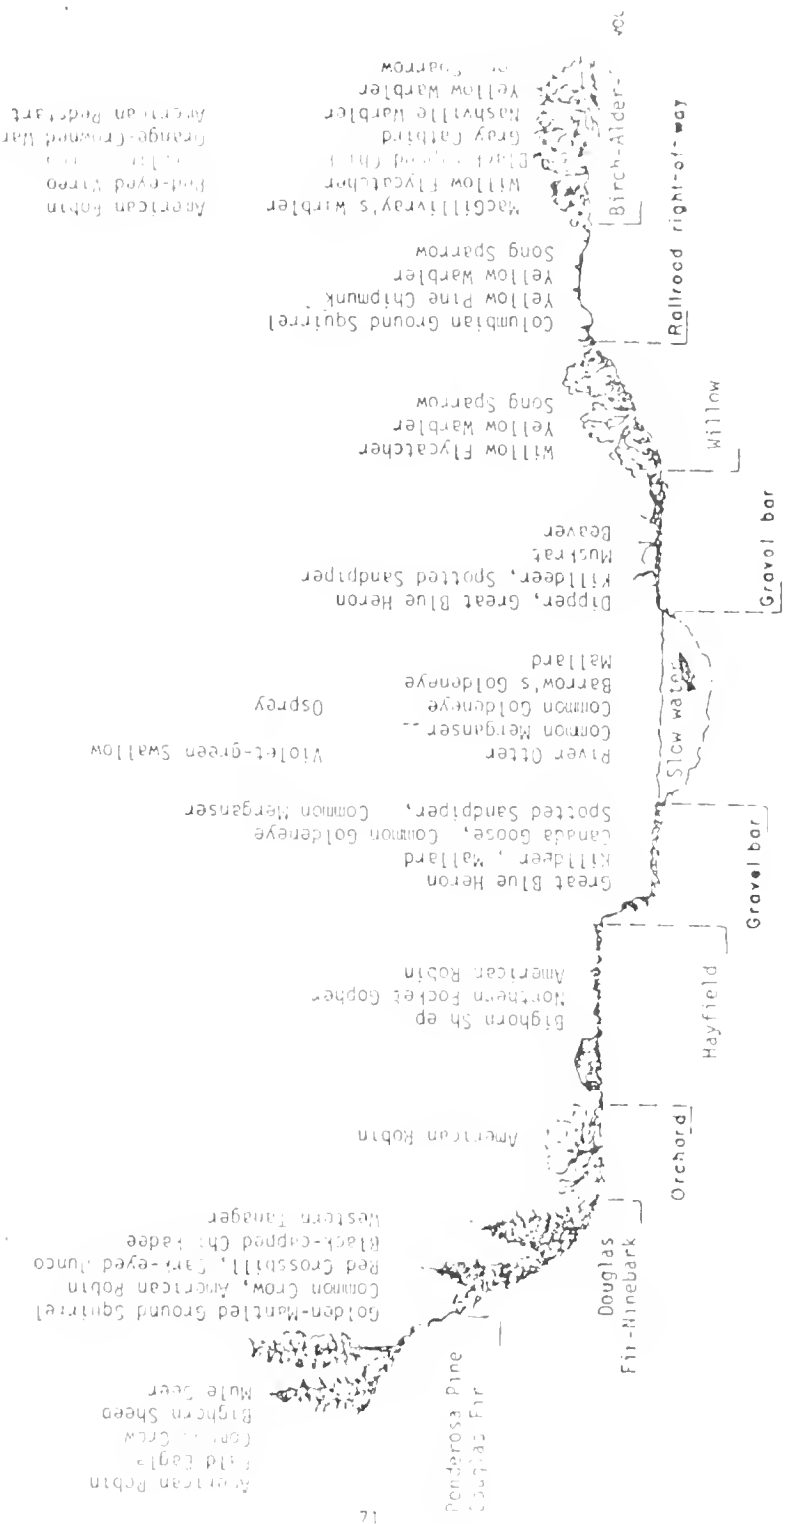 American Robin
Eagle
Crow
Bighorn Sheep
Mule Deer
Ponderosa Pine
Douglas Fir
Golden-Mantled Ground Squirrel
Common Crow, American Robin
Red Crossbill, Dark-eyed Junco
Black-capped
Western Tanager
Douglas
Fir-Ninebark
American Robin
Orchard
Bighorn
Northern Pocket Gopher
American Robin
Hayfield
Great Blue Heron
Killdeer, Mallard
Canada Goose, Common Goldeneye
Spotted Sandpiper, Common Merganser
Gravel bar
River Otter
Common Merganser
Common Goldeneye
Barrow's Goldeneye
Mallard
Violet-green Swallow
Osprey
Slow water
Dipper, Great Blue Heron
Killdeer, Spotted Sandpiper
Muskrat
Beaver
Gravel bar
Willow Flycatcher
Yellow Warbler
Song Sparrow
Willow
Columbian Ground Squirrel
Yellow Pine Chipmunk
Yellow Warbler
Song Sparrow
Railroad right-of-way
MacGillivray's Warbler
Willow Flycatcher
Gray Catbird
Nashville Warbler
Yellow Warbler
Sparrow
American Robin
Red-eyed Vireo
Orange-Crowned War
American Redstart
Birch-Alder-